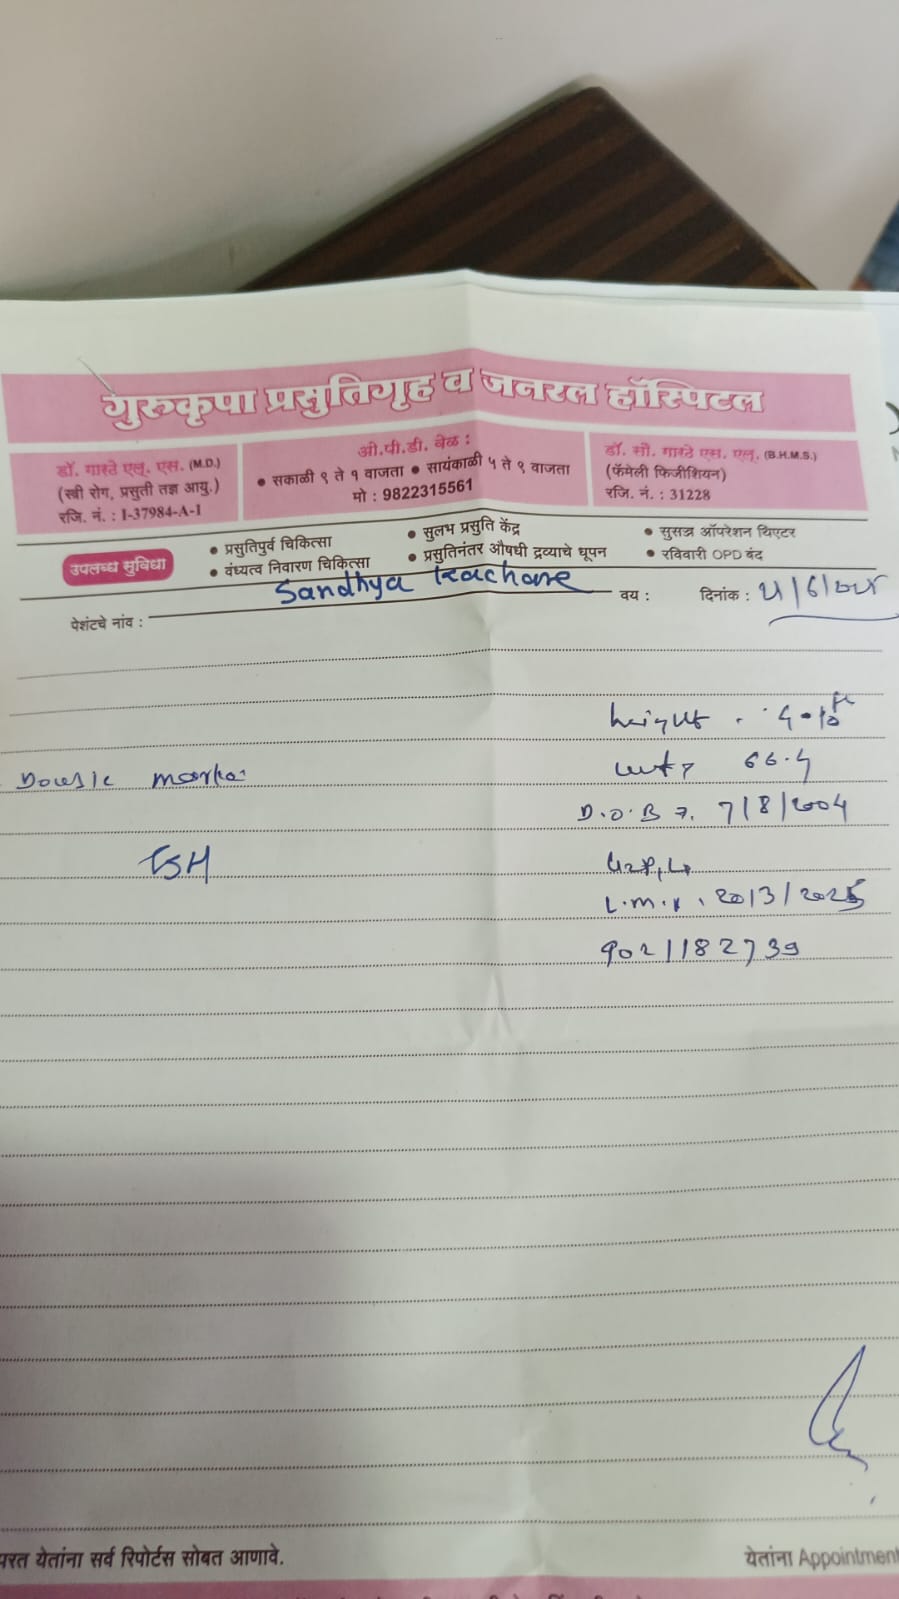 गुरुकृपा प्रसुतिगृह व जनरल हॉस्पिटल
डॉ. गास्ते एल. एस. (M.D.)
(स्त्री रोग, प्रसुती तज्ञ आयु.)
रजि. नं. : I-37984-A-I
ओ.पी.डी. वेळ :
• सकाळी ९ ते १ वाजता • सायंकाळी ५ ते ९ वाजता
मो : 9822315561
डॉ. सौ. गास्ते एस. एल. (B.H.M.S.)
(फॅमेली फिजीशियन)
रजि. नं. : 31228
उपलब्ध सुविधा
• प्रसुतिपुर्व चिकित्सा
• वंध्यत्व निवारण चिकित्सा
• सुलभ प्रसुति केंद्र
• प्रसुतिनंतर औषधी द्रव्याचे धूपन
• सुसज्ज ऑपरेशन थिएटर
• रविवारी OPD बंद
पेशंटचे नांव : Sandhya वय : दिनांक :
height
66.4
D.O.B 7/8/2004
TSH
2013/2025
9021182739
परत येतांना सर्व रिपोर्टस सोबत आणावे.
येतांना Appointment